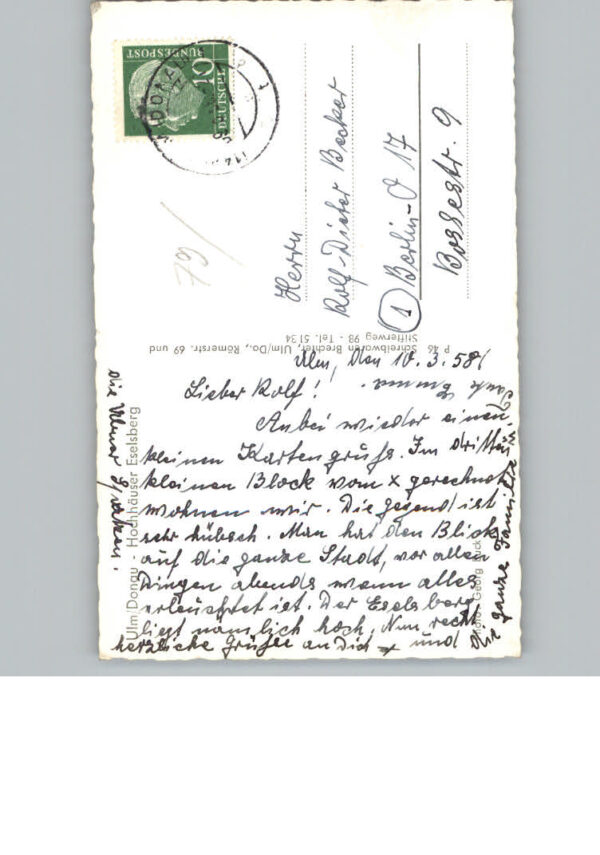 BUNDESPOST
10
DEUTSCHE
Herrn
Rolf-Dieter Becker
(1) Berlin-O 17
Bossestr. 9
79/
P 46 Schreibwaren Brechter, Ulm/Do., Römerstr. 69 und
Stifterweg 98 - Tel. 51 34
Ulm, den 10.3.58
Lieber Rolf!
Anbei wieder einen
kleinen Kartengruß. Im dritten
kleinen Block vom x gerechnet
wohnen wir. Die gegend ist
sehr hübsch. Man hat den Blick
auf die ganze Stadt, vor allen
Dingen abends wenn alles
erleuchtet ist. Der Eselsberg
liegt nämlich hoch. Nun recht
herzliche Grüße an Dich und
die ganze Familie
die Ulmer
Ulm/Donau - Hochhäuser Eselsberg
Georg